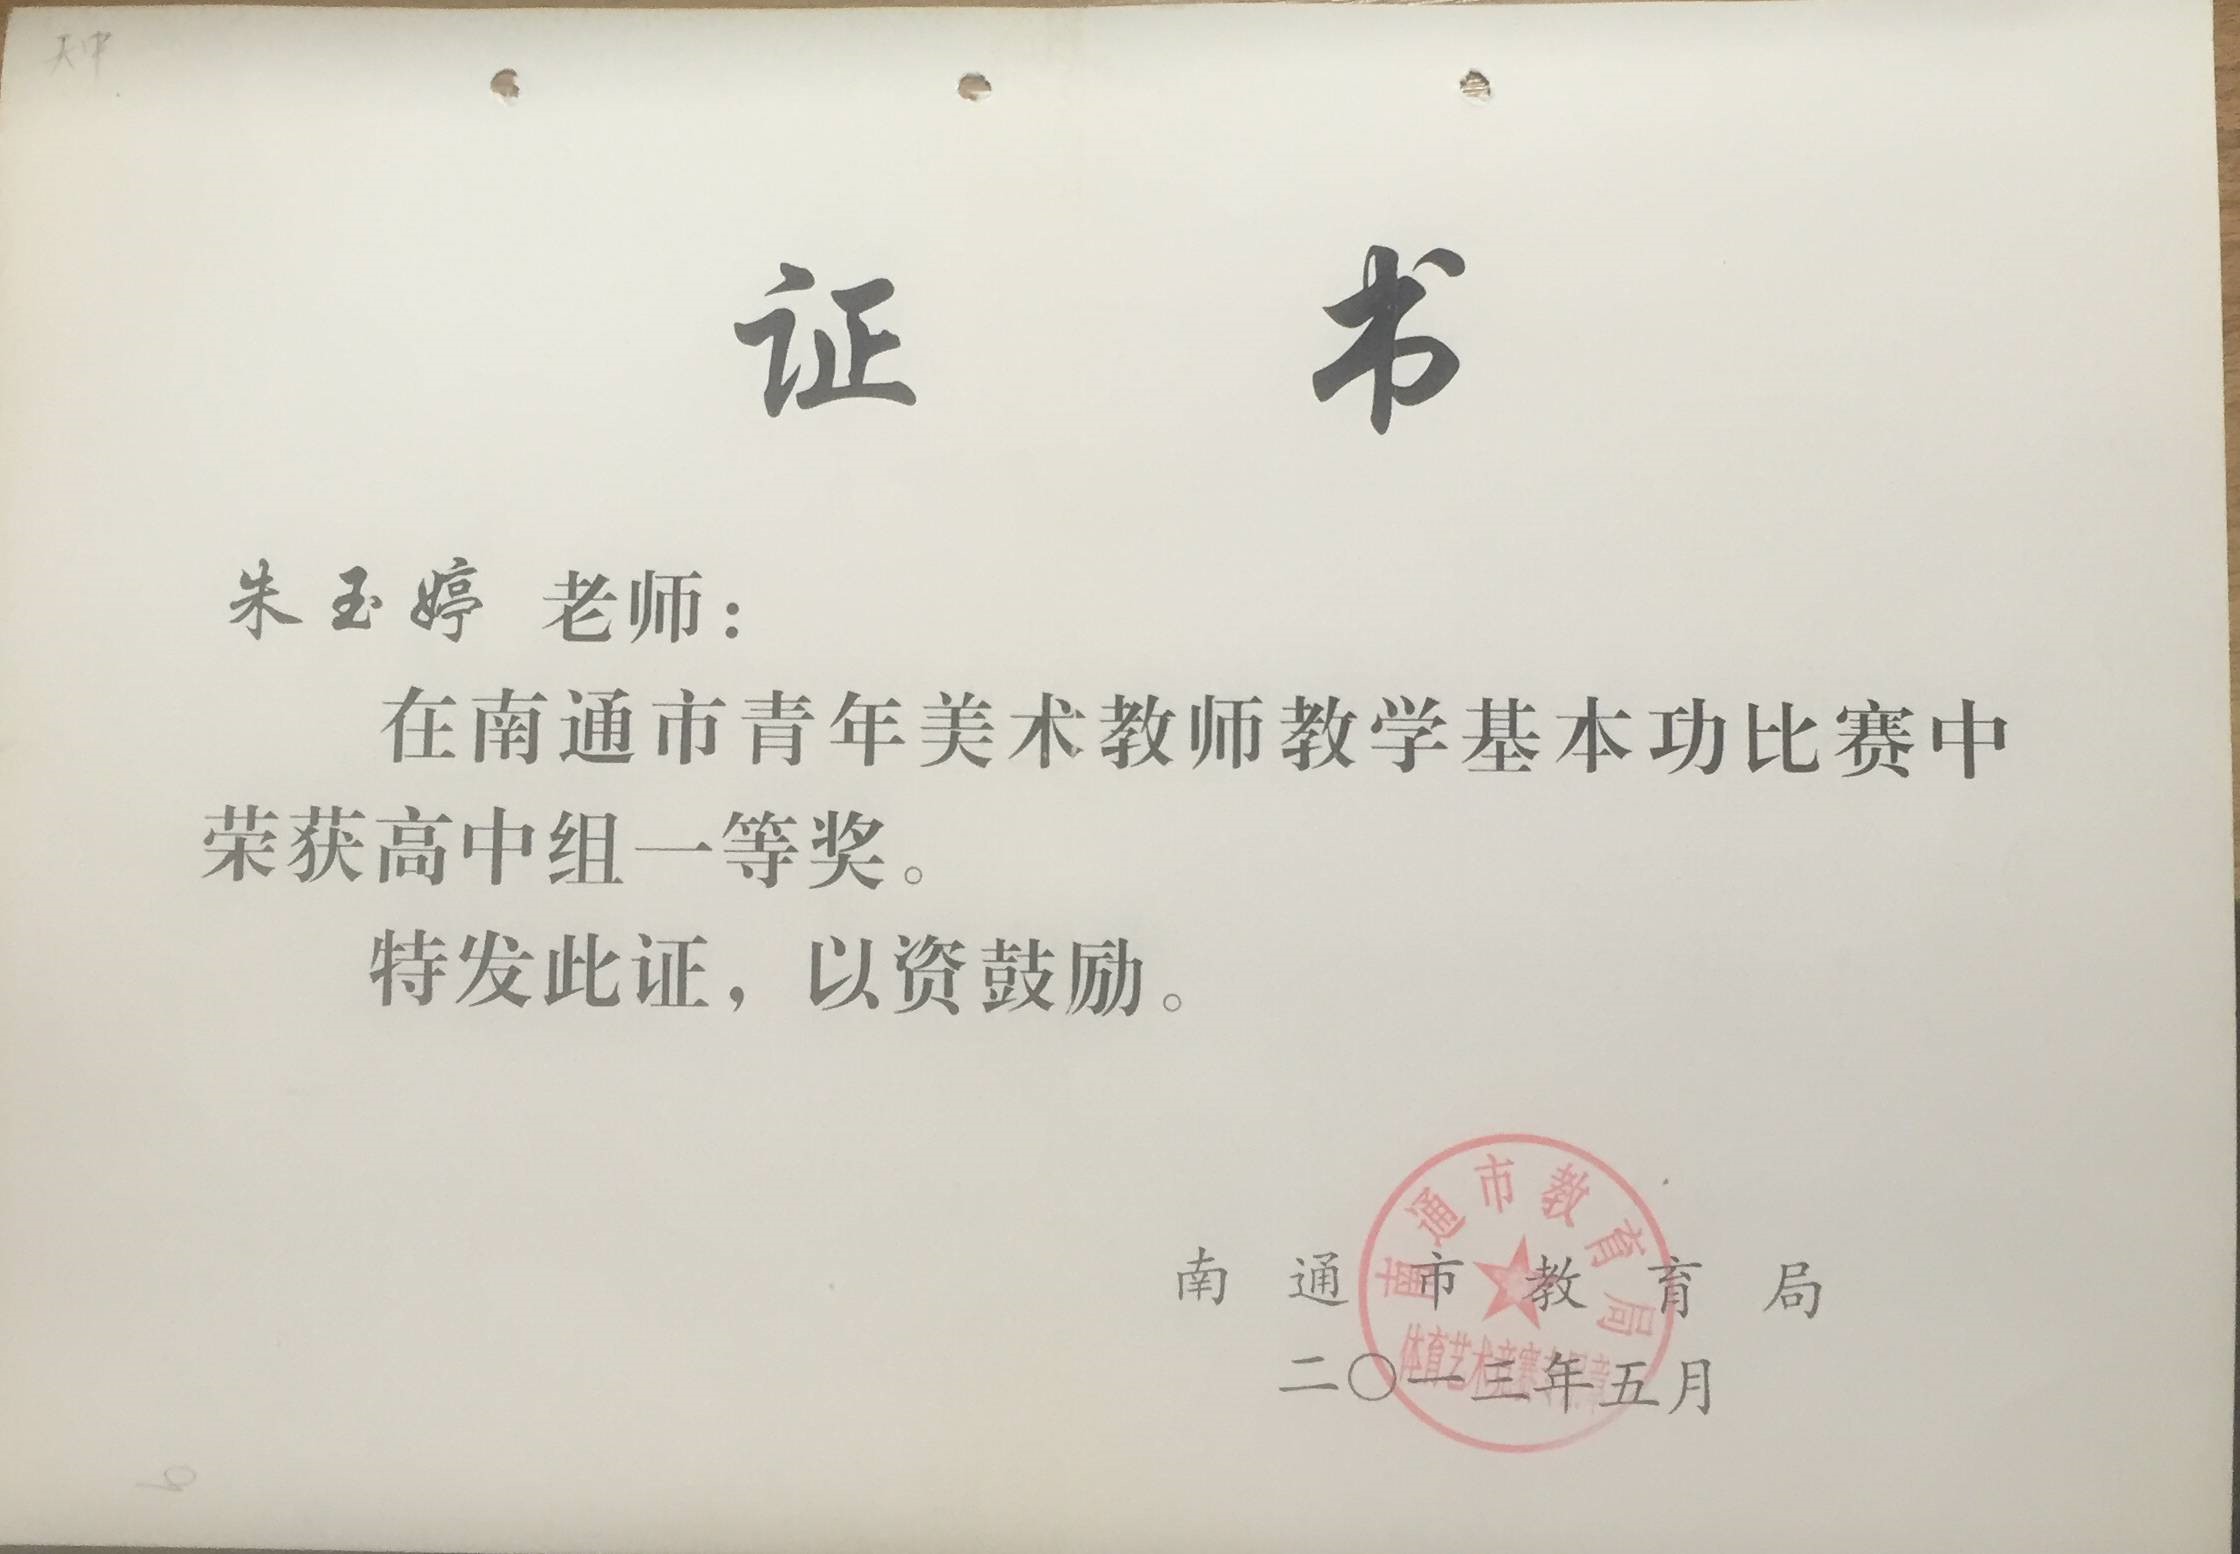 天中
证书
朱玉婷 老师：
在南通市青年美术教师教学基本功比赛中
荣获高中组一等奖。
特发此证，以资鼓励。
南通市教育局
二〇一三年五月
南通市教育局
体育艺术竞赛专用章